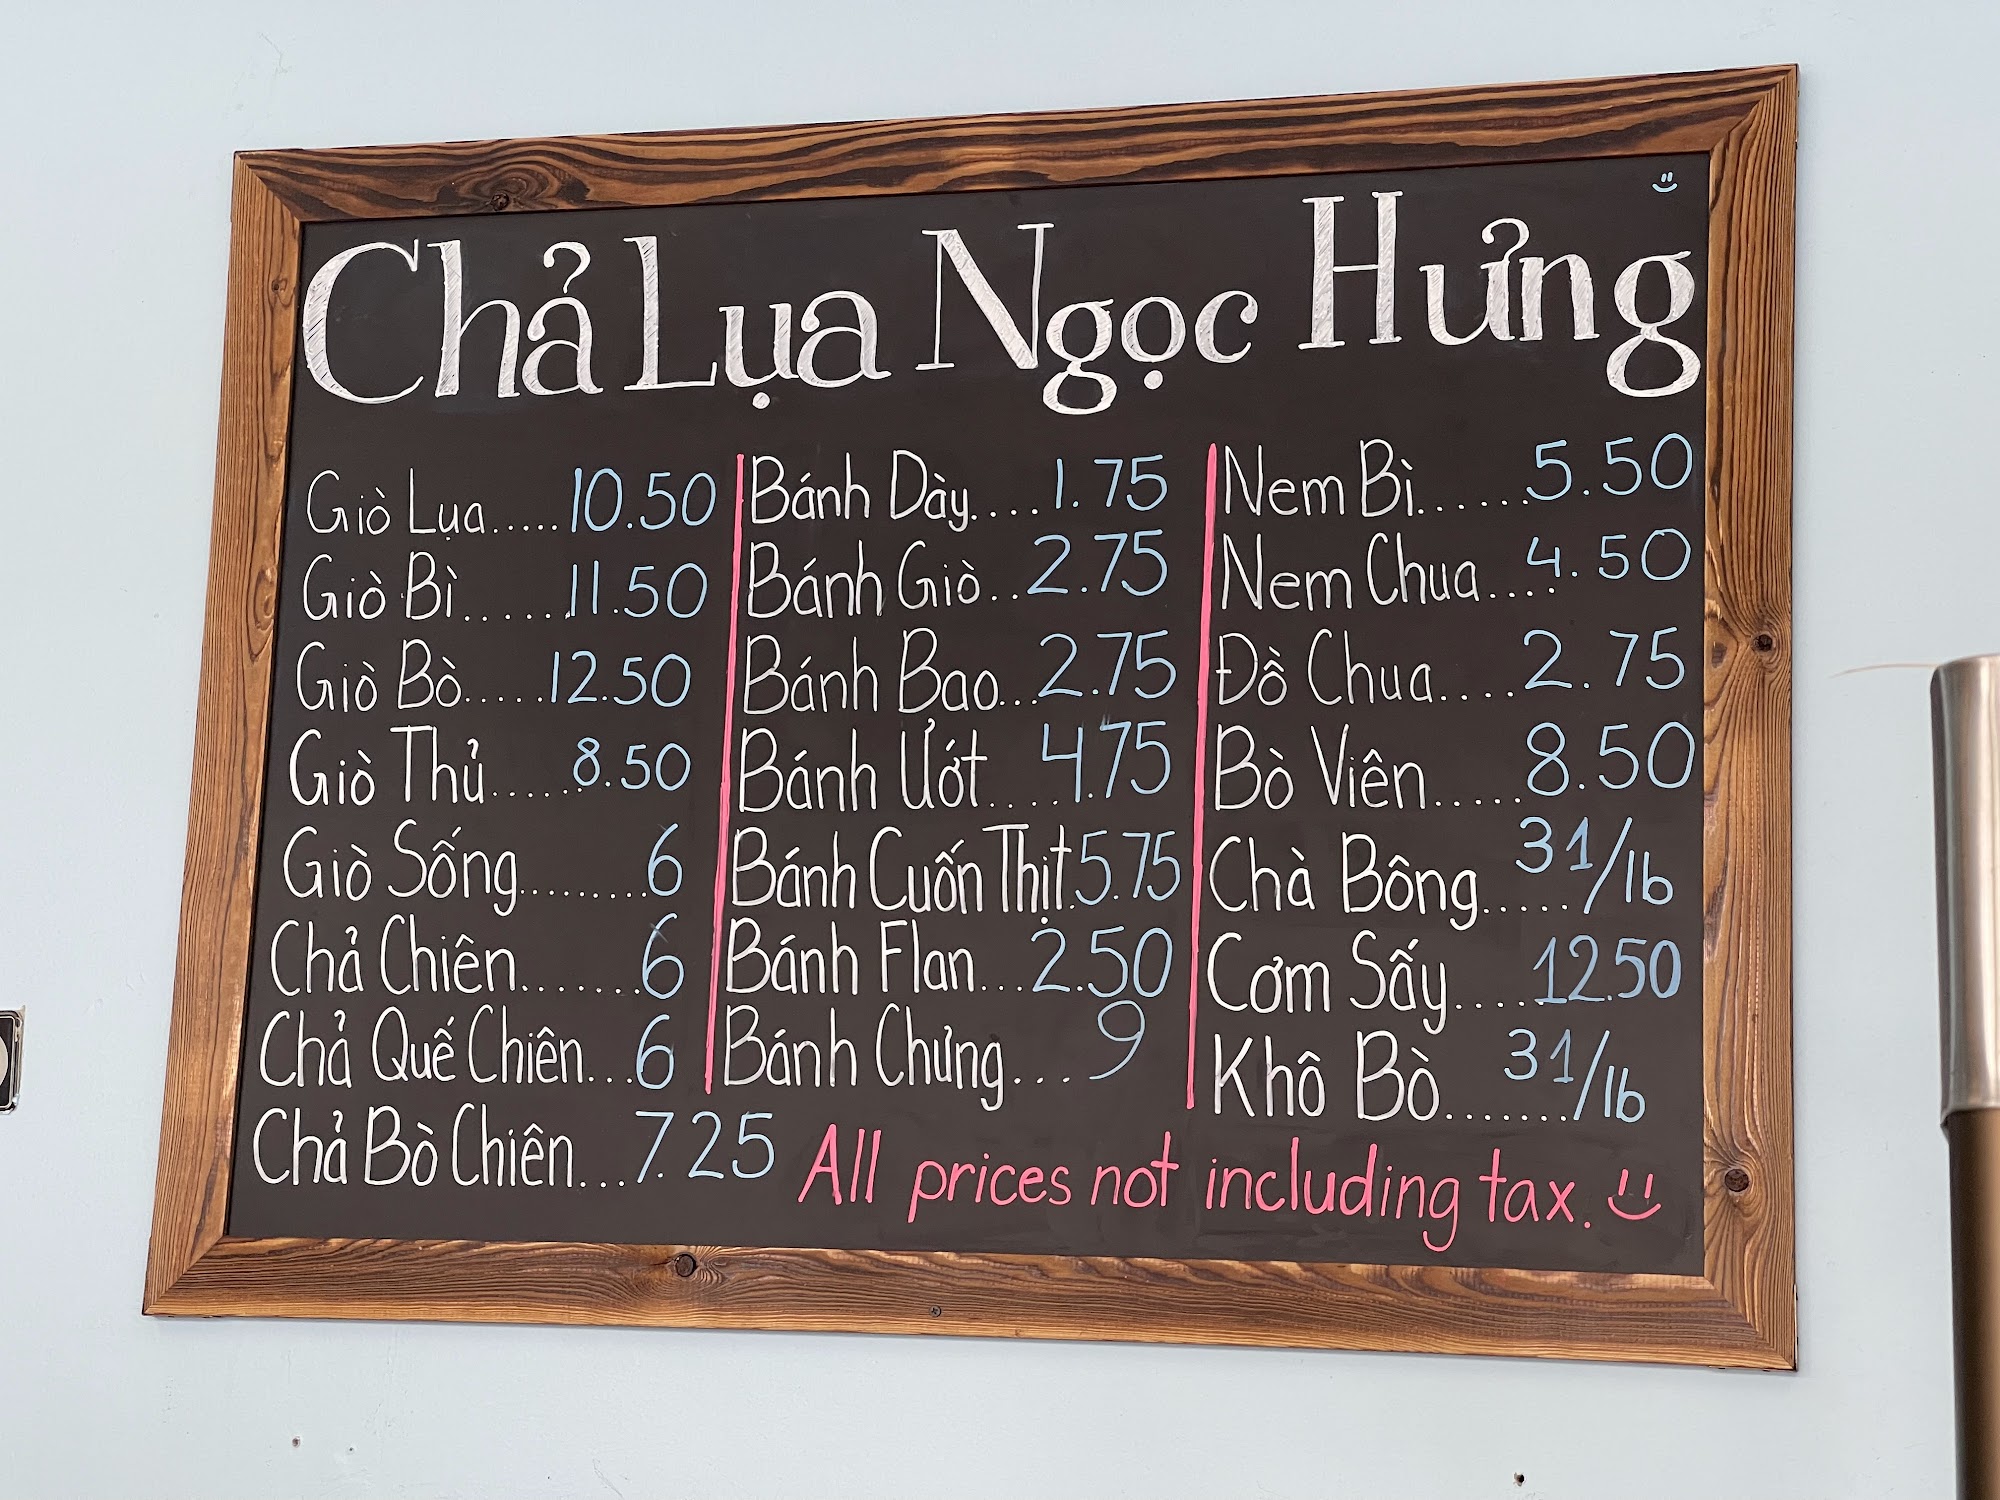 Chả Lụa Ngọc Hưởng
Giò Lụa.....10.50
Giò Bì......11.50
Giò Bò.....12.50
Giò Thủ......8.50
Giò Sống.........6
Chả Chiên.......6
Chả Quế Chiên...6
Chả Bò Chiên...7.25
Bánh Dày....1.75
Bánh Giò..2.75
Bánh Bao...2.75
Bánh Ướt....4.75
Bánh Cuốn Thịt.5.75
Bánh Flan...2.50
Bánh Chưng...9
Nem Bì......5.50
Nem Chua....4.50
Đồ Chua....2.75
Bò Viên.....8.50
Chà Bông.....31/lb
Cơm Sấy....12.50
Khô Bò.......31/lb
All prices not including tax.